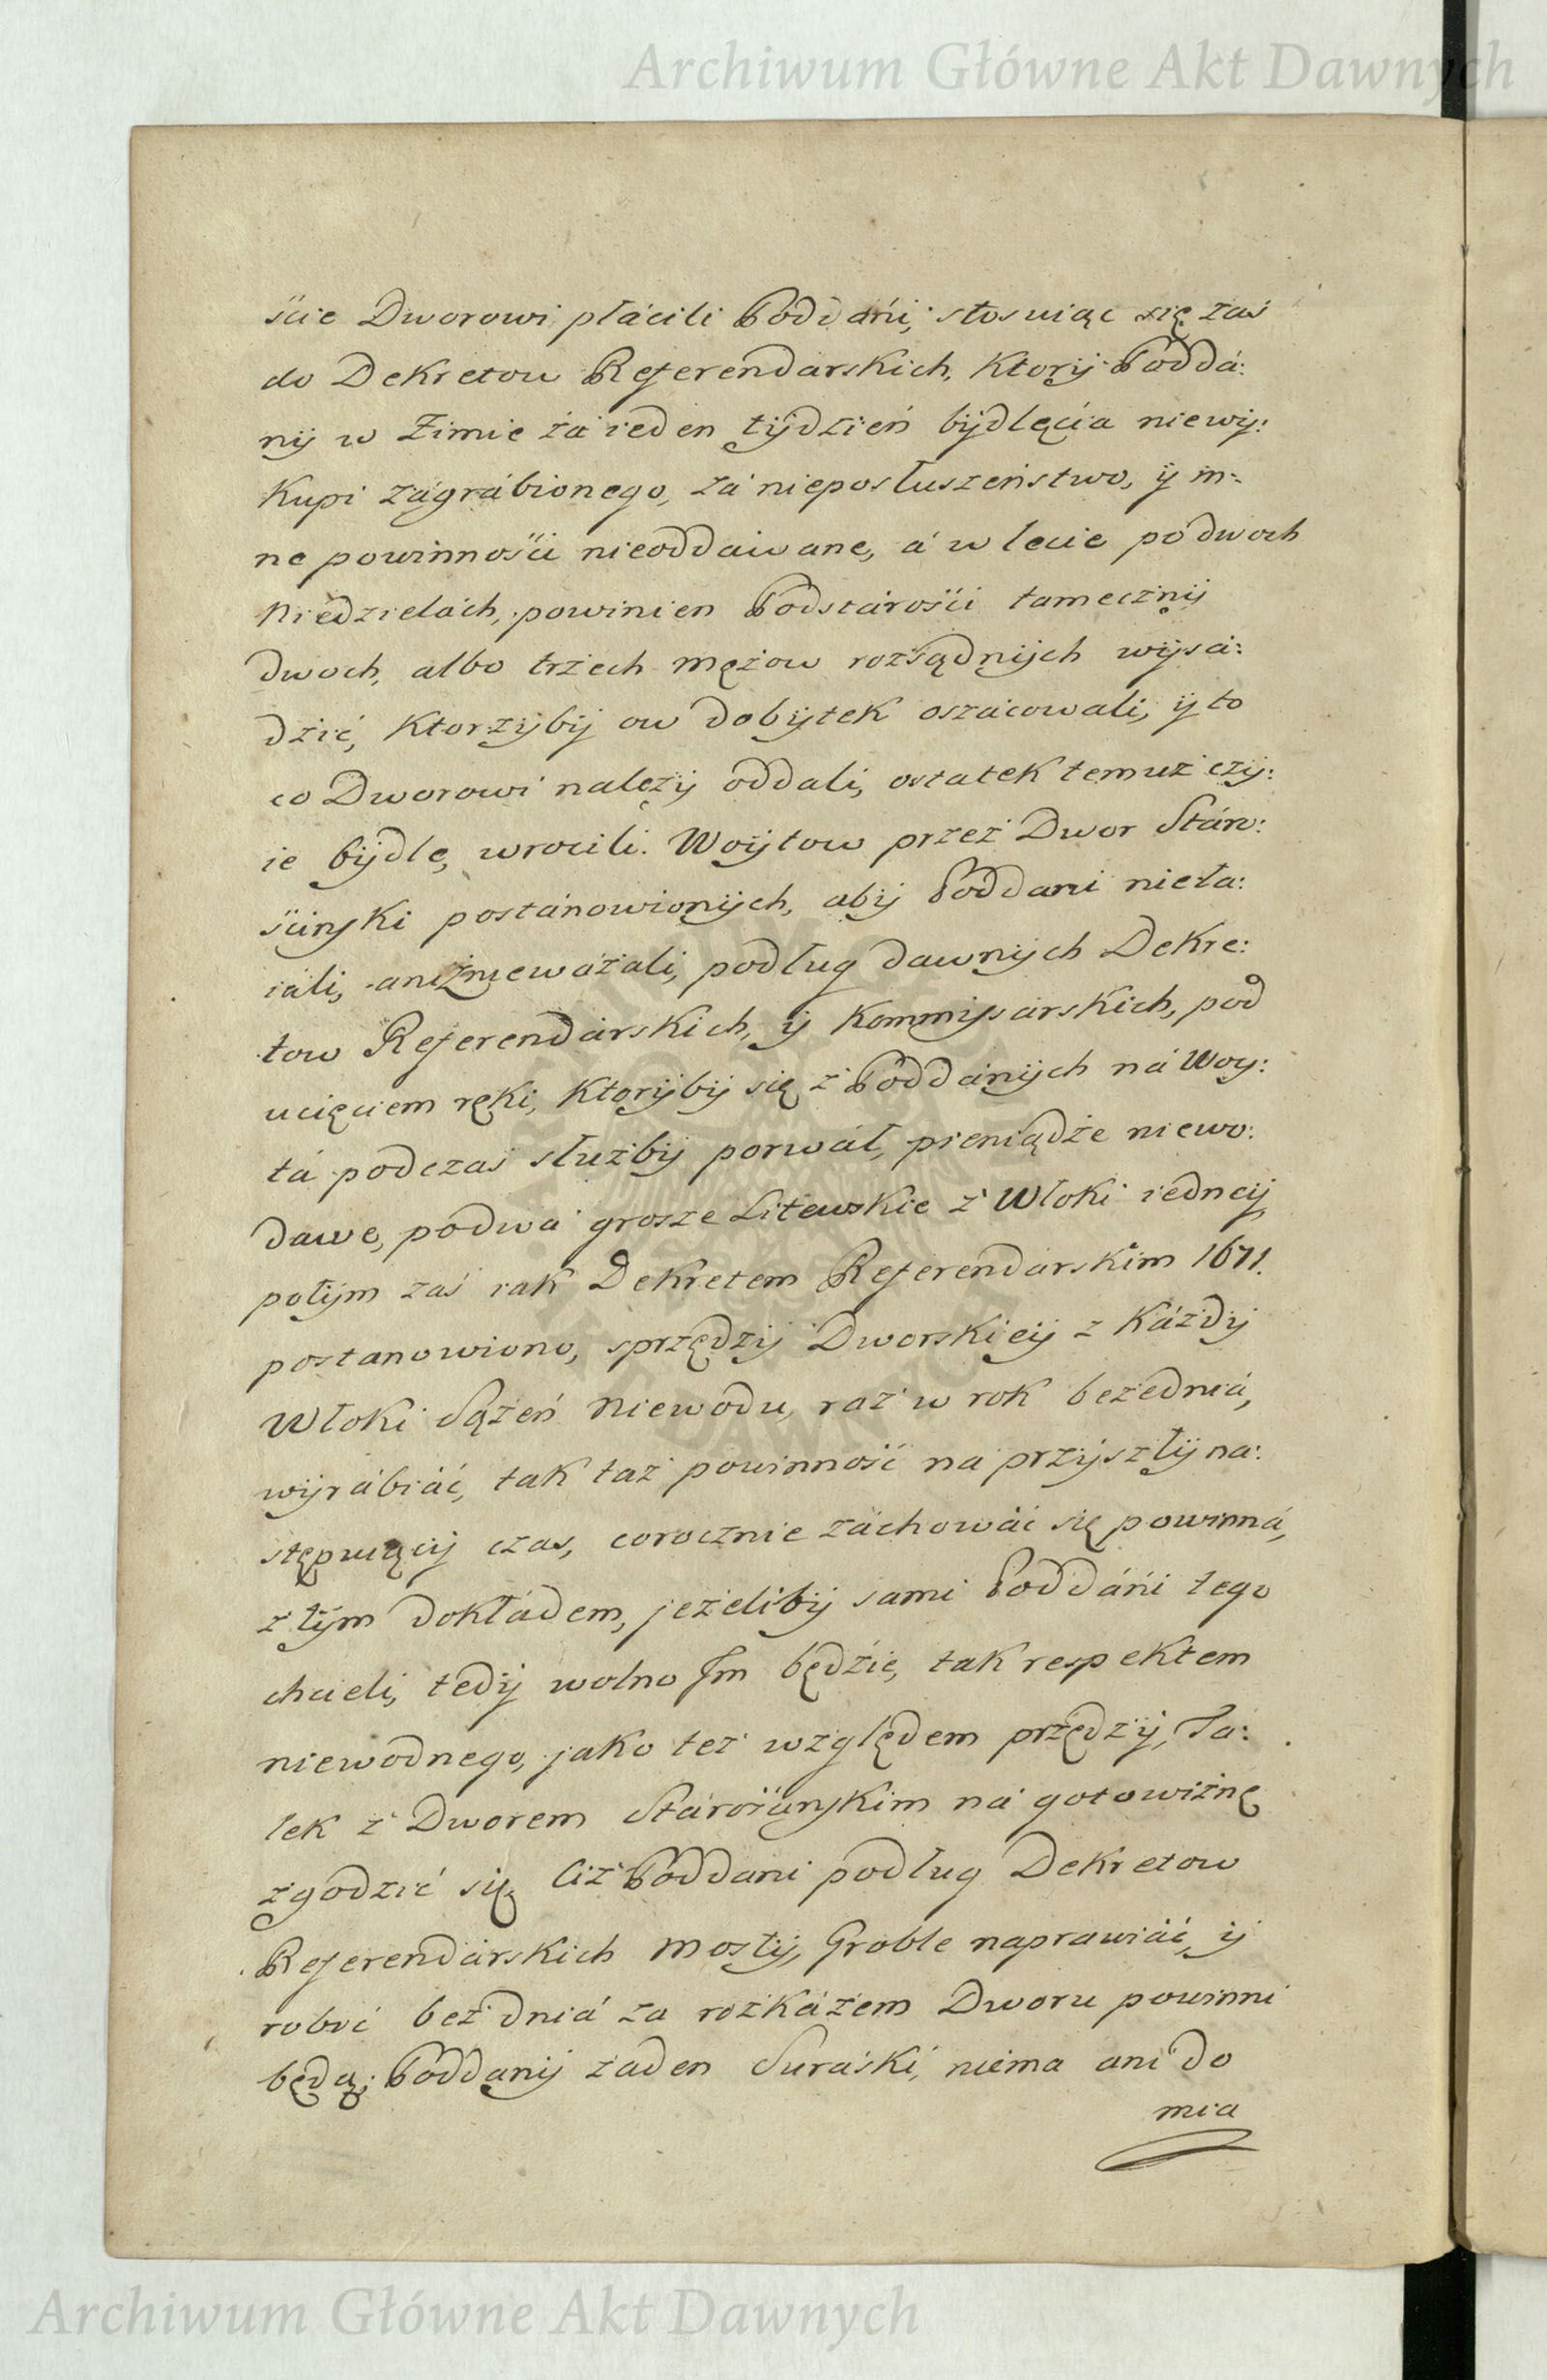 Archiwum Główne Akt Dawnych
ście Dworowi płácili Poddáńi, stosuiąc się zaś
do Dekretow Referendarskich, Ktorÿ Poddá:
nÿ w Zimie zá ieden tÿdzień bÿdlęcia niewÿ:
Kupi zágrábionego, zá nieposłuszeństwo, ÿ in:
ne powinnośći nieoddaiwane, á w lecie po dwoch
Niedzielách, powinien Podstárośći tamecznÿ
dwoch, albo trzech mężow rozsądnÿch wÿsá:
dzić, Ktorzÿbÿ ow dobÿtek oszácowali, ÿ to
co Dworowi nalezÿ oddali, ostatek temuż czÿ:
ie bÿdle, wrocili. Woÿtow przez Dwor Stáro:
śćinski postánowionÿch, abÿ Poddani nieła:
iáli, ani znieważali, podług dawnÿch Dekre:
tow Referendárskich, ÿ Kommissarskich, pod
ucięciem ręki, Ktorÿbÿ się z Poddánÿch ná Woy:
tá podczas służbÿ porwáł, pieniądze niewo:
dawe, po dwa grosze Litewskie z Włoki iedneÿ
potÿm zaś iak Dekretem Referendarskim 1671.
postanowiono, z przędzÿ Dworskieÿ z Káżdÿ
Włoki Sążeń Niewodu, raz w rok bezedniá,
wÿrábiáć, tak taż powinność na przÿszłÿ na:
stępuiącÿ czas, corocznie záchowáć się powinná,
z tÿm dokłádem, jeżelibÿ sami Poddáńi tego
chcieli, tedÿ wolno Im będzie, tak respektem
niewodnego, jako też względem przędzÿ, Ta:
lek z Dworem Stárościnskim ná gotowiznę
zgodzić się. Ciż Poddani podług Dekretow
Referendárskich Mostÿ, Groble naprawiáć, ÿ
robić bez dniá za rozkázem Dworu powinni
będą; Poddanÿ żaden Suráski, niema ani do
mia
Archiwum Główne Akt Dawnych